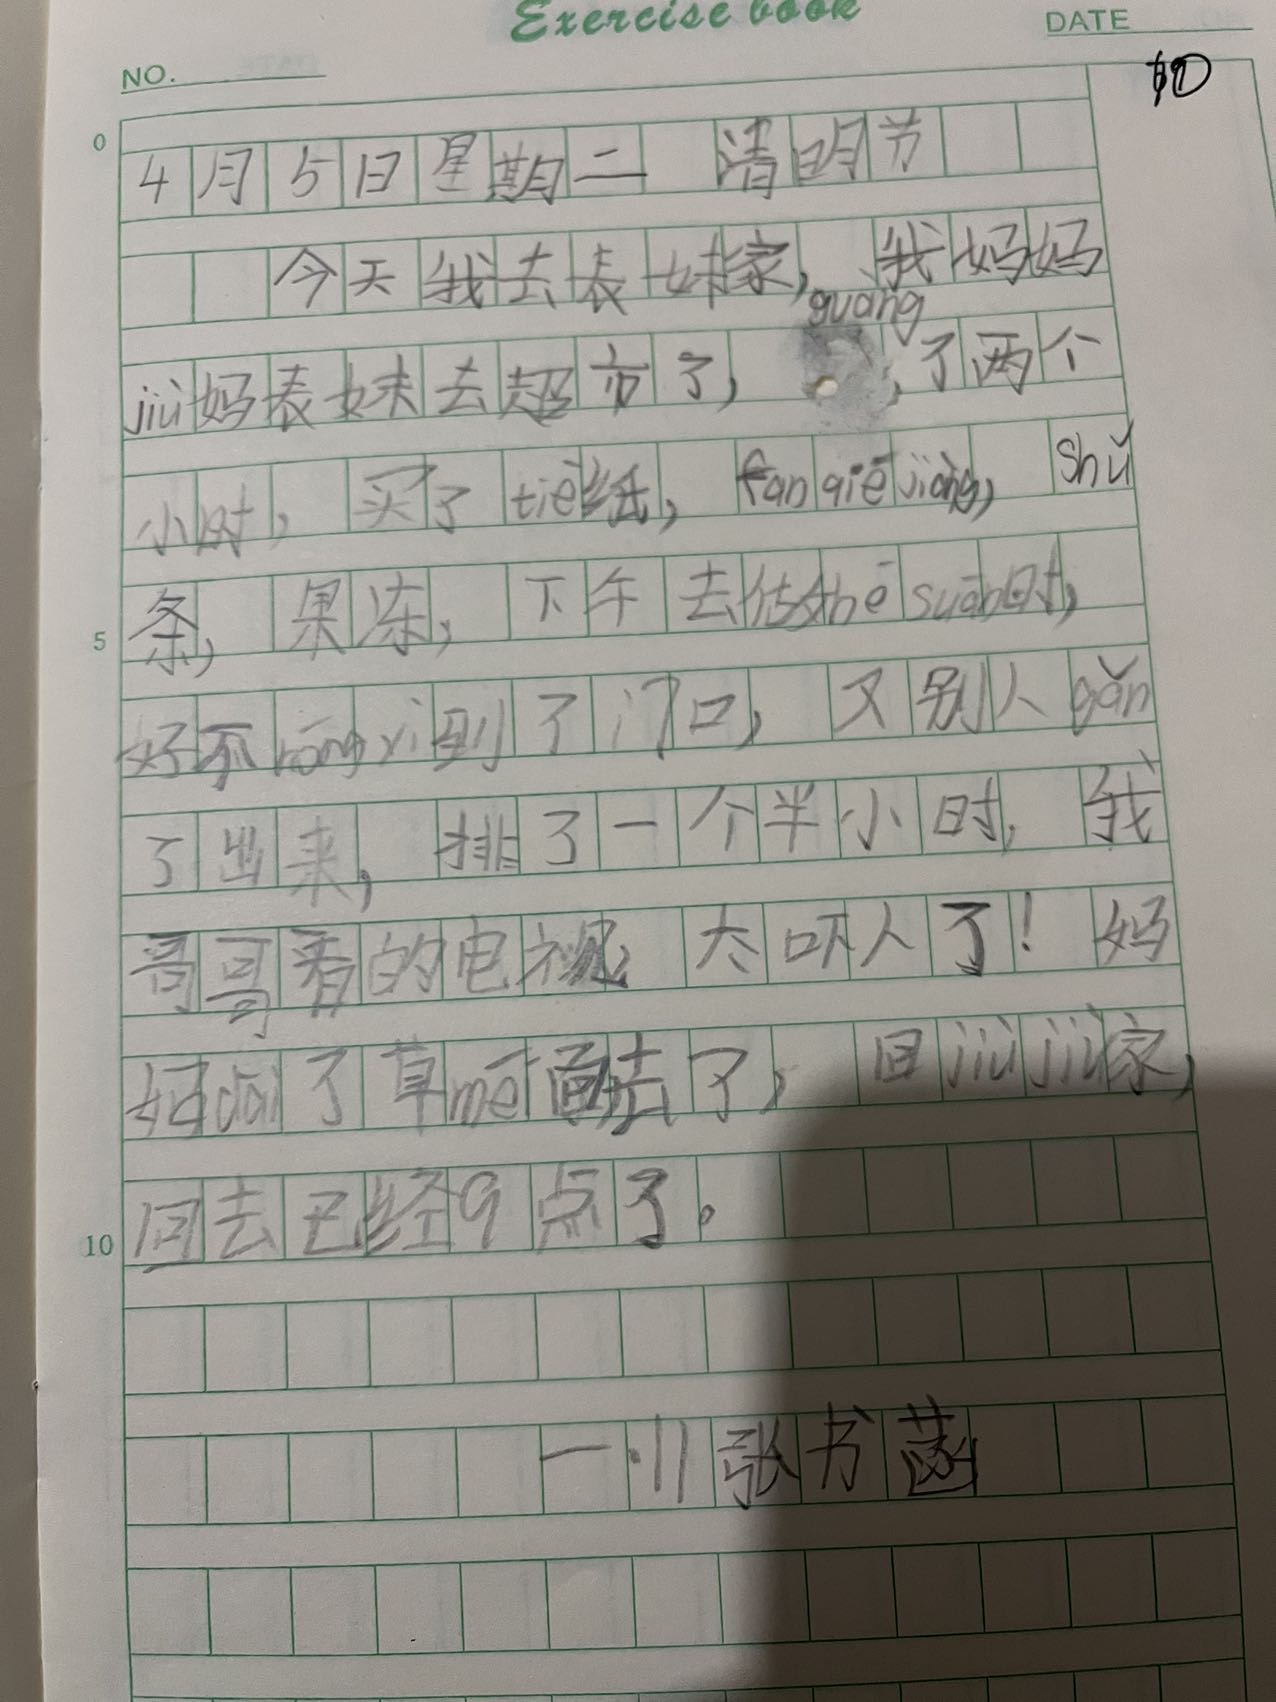 Exercise book
DATE
NO.
0
4月5日星期二 清明节
今天我去表妹家,我妈妈
guang
jiù妈表妹去超市了, ,了两个
小时,买了tiē纸,fān qié jiàng, shǔ
条,果冻,下午去做hé suān时,
好不róng yì到了门口,又别人gǎn
了出来,排了一个半小时,我
哥哥看的电视 太吓人了!妈
妈dài了草méi 去了,回jiù jiù家,
5
回去已经9点了。
10
一.11 张书菡